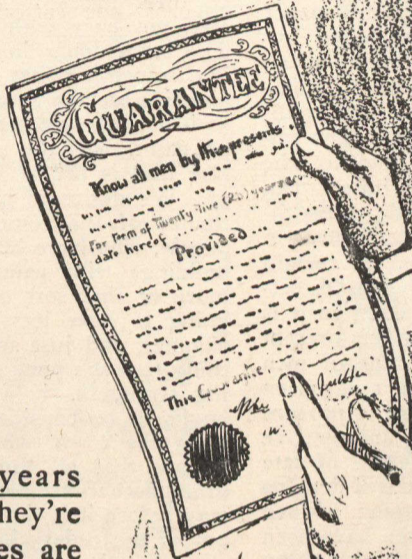 GUARANTEE
Know all men by these presents
For term of Twenty five (25) years
date hereof
Provided
This Guarantee
years
hey're
es are